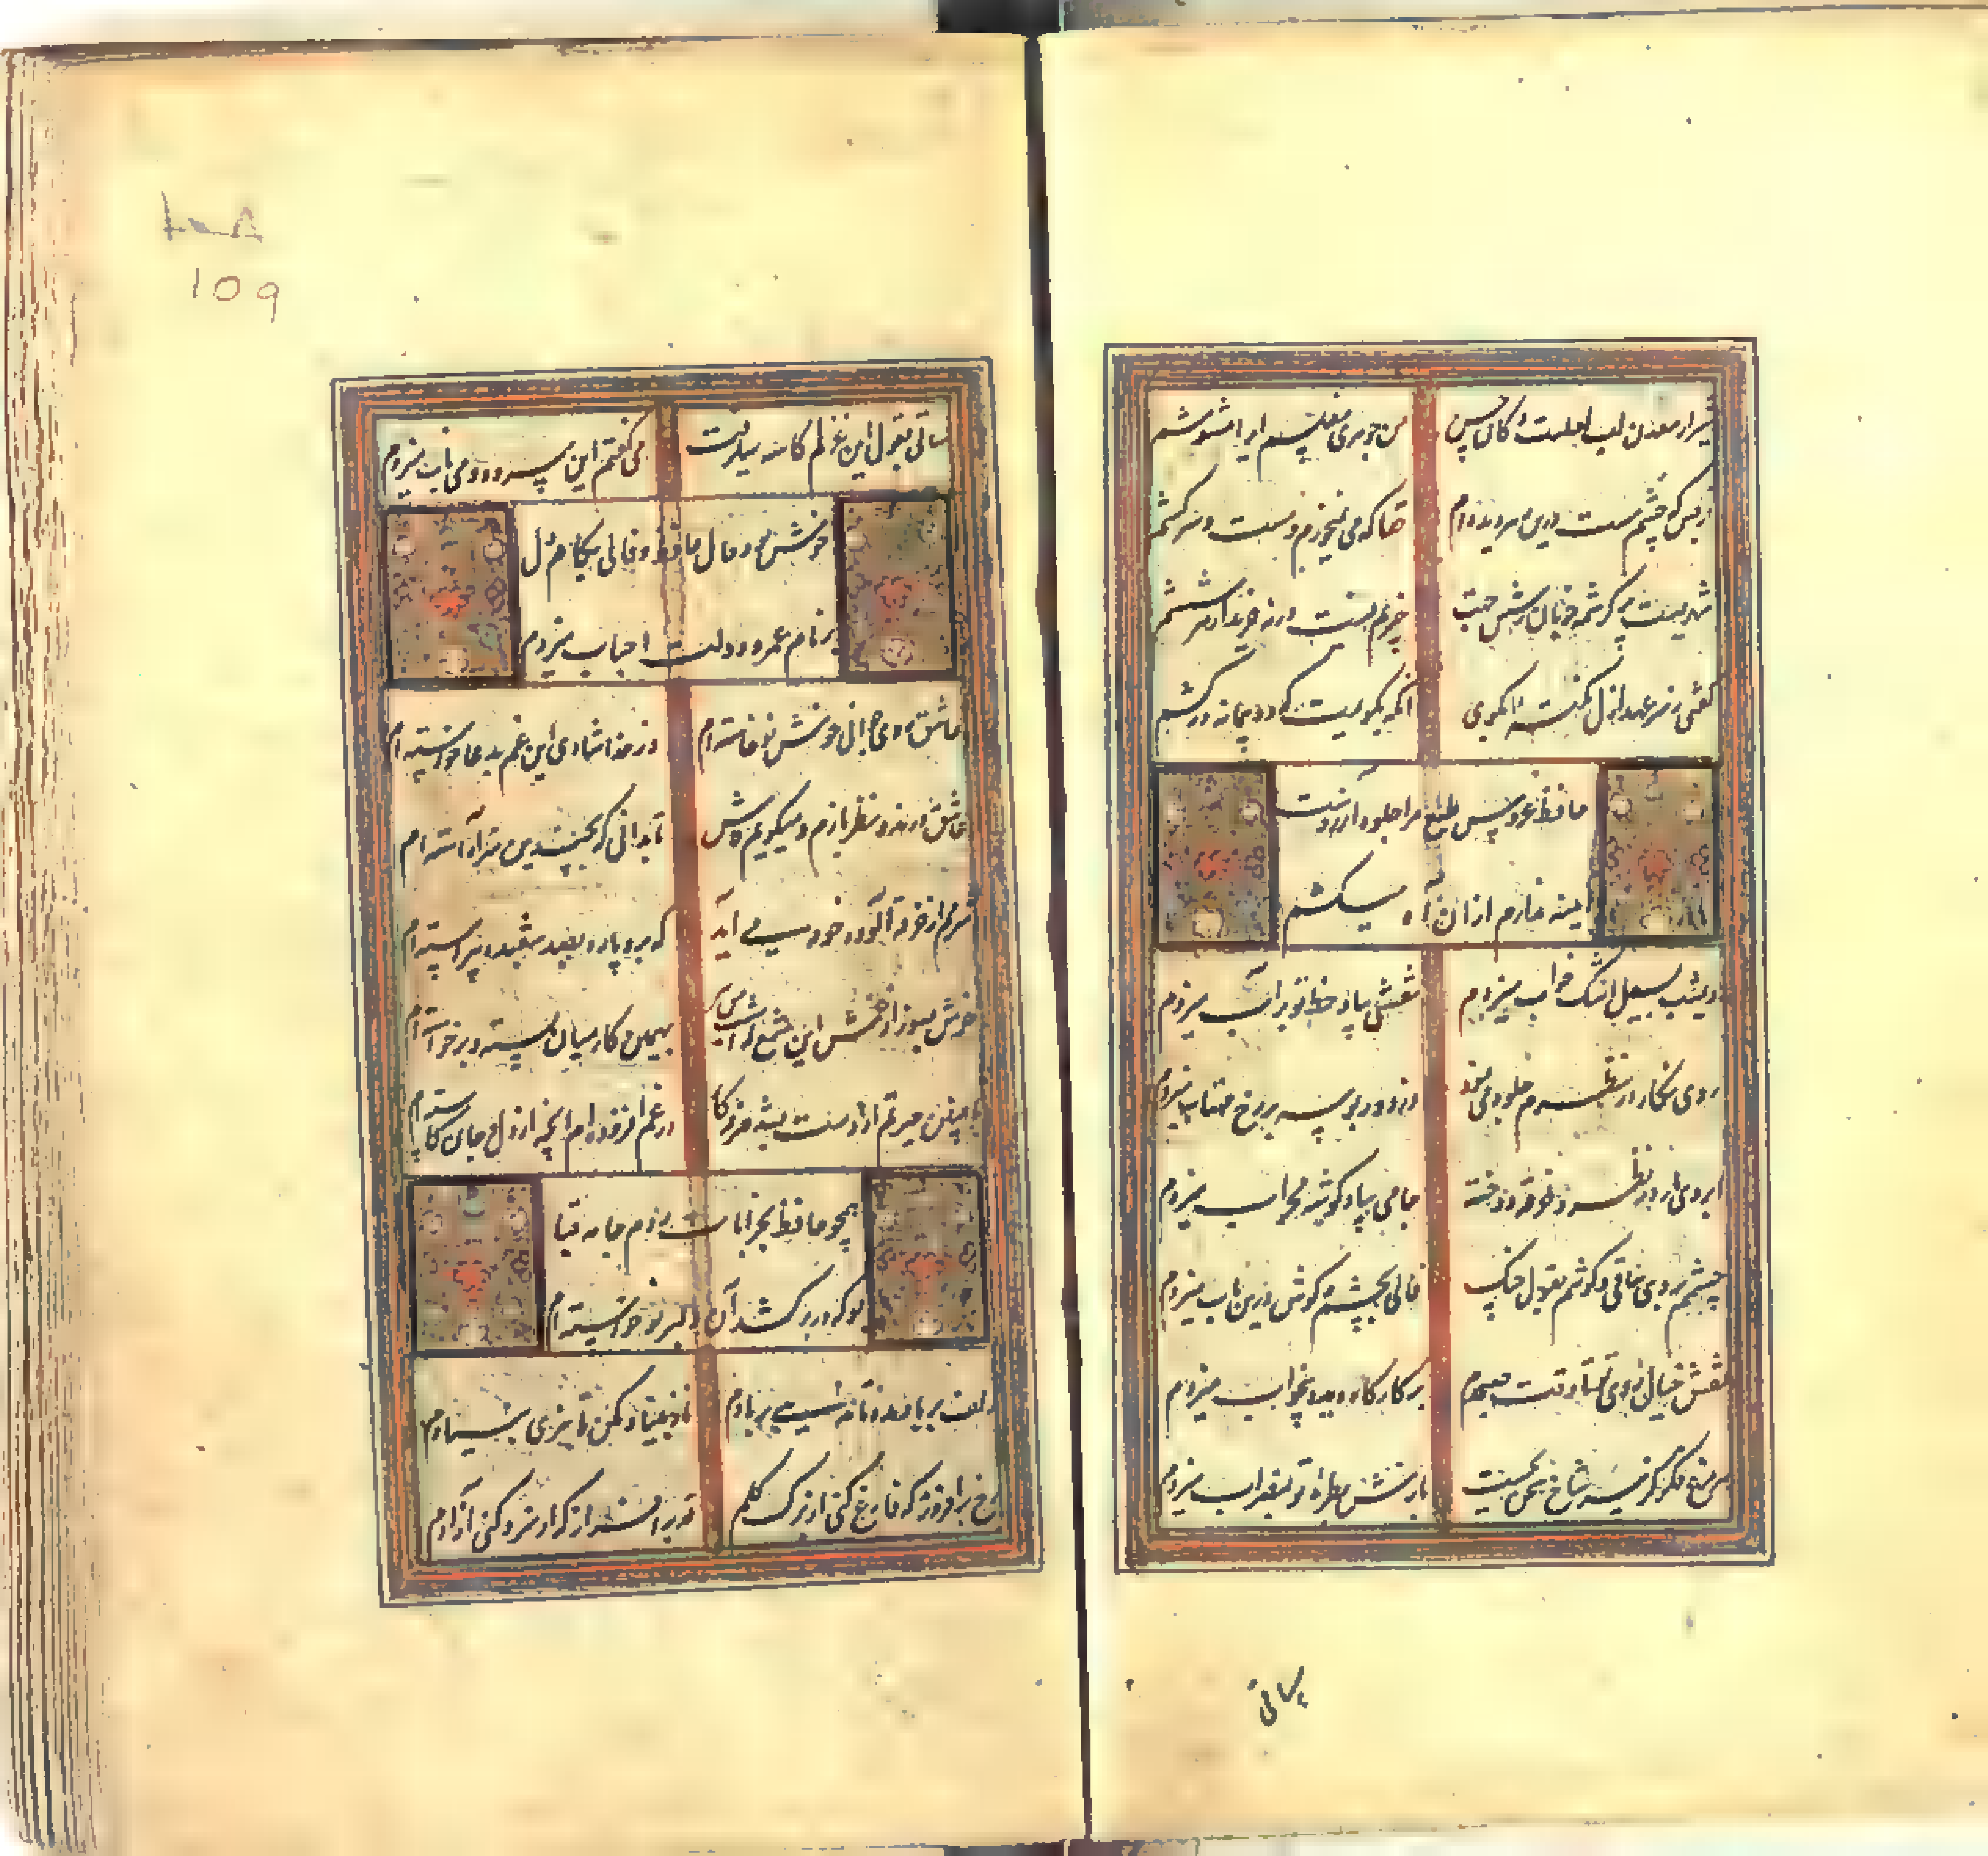 شیراز معدن لب لعلست و کان حسن
من جوهری مفلسم ایرا مشوشم
از بس که چشم مست درین شهر دیده‌ام
حقا که می نمیخورم و مست و سرخوشم
شهریست پر کرشمه خوبان ز شش جهت
چیزیم نیست ورنه خریدار هر ششم
گفتی ز سر عهد ازل نکته بگوی
آنگه بگویمت که دو پیمانه درکشم
حافظ عروس طبع مرا جلوه آرزوست
آیینه ندارم از ان آه میکشم
دیشب بسیل اشک ره خواب میزدم
نقشی بیاد خط تو بر آب میزدم
روی نگار در نظرم جلوه می نمود
وز دور بوسه بر رخ مهتاب میزدم
ابروی یار در نظر و خرقه سوخته
جامی بیاد گوشه محراب میزدم
چشمم بروی ساقی و گوشم بقول چنگ
فالی بچشم و گوش درین باب میزدم
نقش خیال روی تو تا وقت صبحدم
بر کارگاه دیده بیخواب میزدم
هر مرغ فکر کز سر شاخ سخن بجست
بازش ز طره تو بمضراب میزدم
ساقی
109
ساقی بقول این غزلم کاسه میگرفت
می گفتم این سرود و می ناب میزدم
خوش بود حال حافظ و فالی بکام دل
بر نام عمر و دولت احباب میزدم
عاشق روی جوانی خوش نوخاسته‌ام
وز خدا شادی این غم بدعا خواسته‌ام
عاشق و رند و نظربازم و میگویم فاش
تا بدانی که بچندین هنر آراسته‌ام
شرمم از خرقه آلوده خود می آید
که برو پاره بصد شعبده پیراسته‌ام
خوش بسوز از غمش ای شمع که امشب من نیز
بهمین کار میان بسته و برخاسته‌ام
با چنین حیرتم از دست بشد صرفه کار
در غم افزوده‌ام آنچه از دل و جان کاسته‌ام
همچو حافظ بخرابات روم جامه قبا
بو که در بر کشد آن دلبر نوخواسته‌ام
زلف بر باد مده تا ندهی بر بادم
ناز بنیاد مکن تا نبری بنیادم
رخ برافروز که فارغ کنی از برگ گلم
قد برافراز که از سرو کنی آزادم